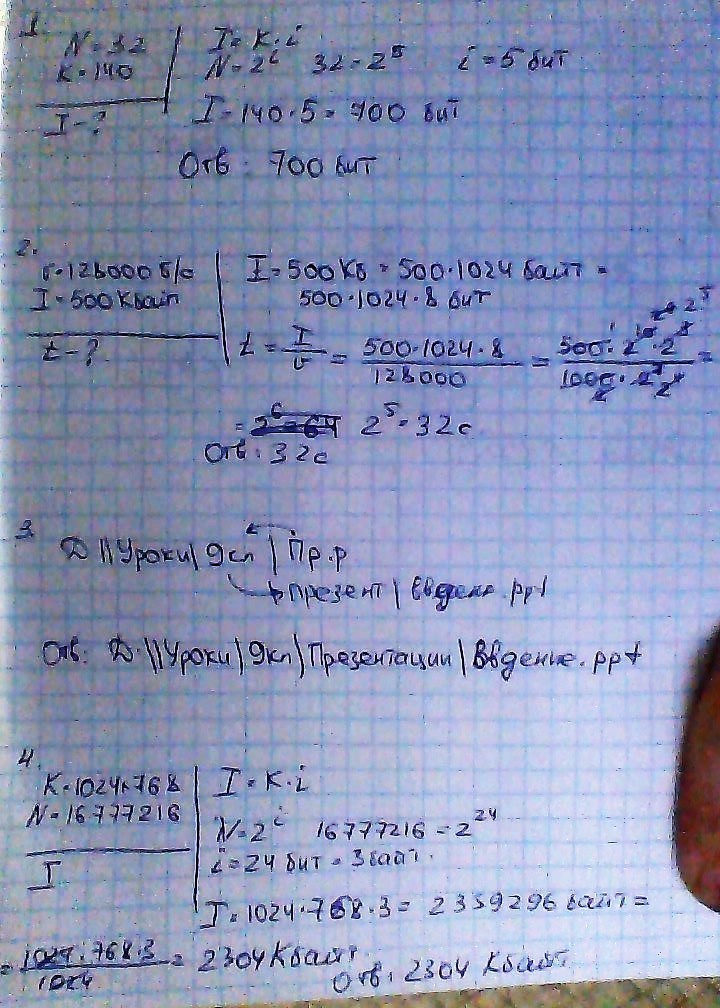 1.
N = 32 I = K·i
K = 140 N = 2^i 32 = 2^5 i = 5 бит
I - ? I = 140·5 = 700 бит
Отв: 700 бит
2.
v = 128000 б/с I = 500 Кб = 500·1024 байт =
I = 500 Кбайт 500·1024·8 бит
t - ? t = I/v = 500·1024·8/128000 =
= 2^6 = 64 2^5 = 32 с
Отв: 32 с
3.
Д\\Уроки\9кл\Пр.р
през­ент\введение.ppt
Отв: Д:\\Уроки\9кл\Презентации\Введение.ppt
4.
K = 1024×768 I = K·i
N = 16777216 N = 2^i 16777216 = 2^24
I i = 24 бит = 3 байт.
I = 1024·768·3 = 2359296 байт =
= 1024·768·3/1024 = 2304 Кбайт
Отв: 2304 Кбайт